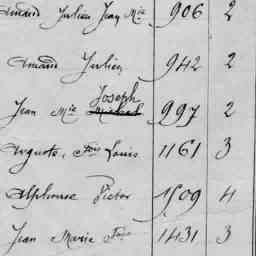 Amand Julien Jean Mie 906 2
Amand Julien 942 2
Joseph
Jean Mie Michel 997 2
Auguste, Fois Louis 1161 3
Alphonse Victor 1509 4
Jean Marie Fois 1431 3